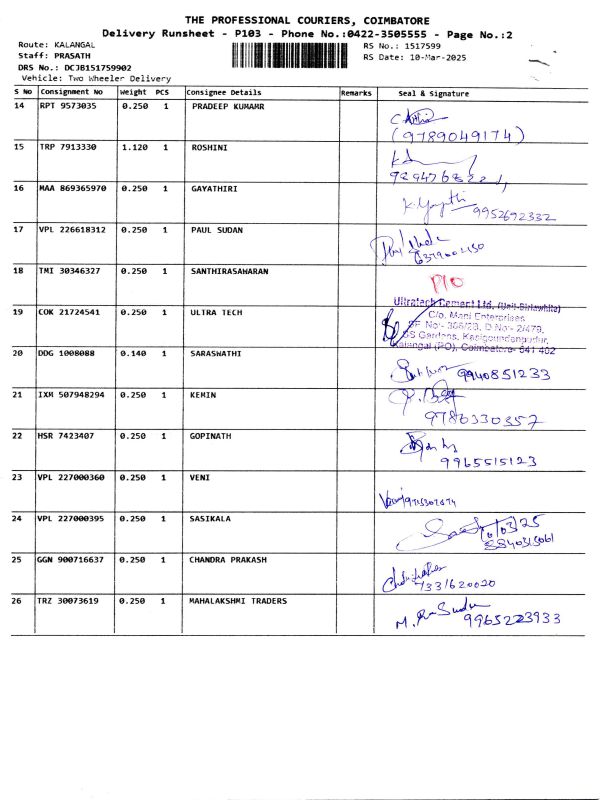 THE PROFESSIONAL COURIERS, COIMBATORE
Delivery Runsheet - P103 - Phone No.:0422-3505555 - Page No.:2
Route: KALANGAL
RS No.: 1517599
Staff: PRASATH
RS Date: 10-Mar-2025
DRS No.: DCJB151759902
Vehicle: Two Wheeler Delivery
S No Consignment No Weight PCS Consignee Details Remarks Seal & Signature
14 RPT 9573035 0.250 1 PRADEEP KUMAMR
(9789049174)
15 TRP 7913330 1.120 1 ROSHINI
16 MAA 869365970 0.250 1 GAYATHIRI
K. Gayathri 9952692332
17 VPL 226618312 0.250 1 PAUL SUDAN
18 TMI 30346327 0.250 1 SANTHIRASAHARAN
P10
19 COK 21724541 0.250 1 ULTRA TECH
Ultratech Cement Ltd. (Unit-Birlawhite)
C/o. Mani Enterprises
SF No:- 306/2B, D No:- 2/479,
SS Gardens,
Kalangal (PO), Coimbatore- 641 402
20 DDG 1008088 0.140 1 SARASWATHI
9940851233
21 IXM 507948294 0.250 1 KEMIN
9786330357
22 HSR 7423407 0.250 1 GOPINATH
9965515123
23 VPL 227000360 0.250 1 VENI
24 VPL 227000395 0.250 1 SASIKALA
25 GGN 900716637 0.250 1 CHANDRA PRAKASH
7331620020
26 TRZ 30073619 0.250 1 MAHALAKSHMI TRADERS
9965223933